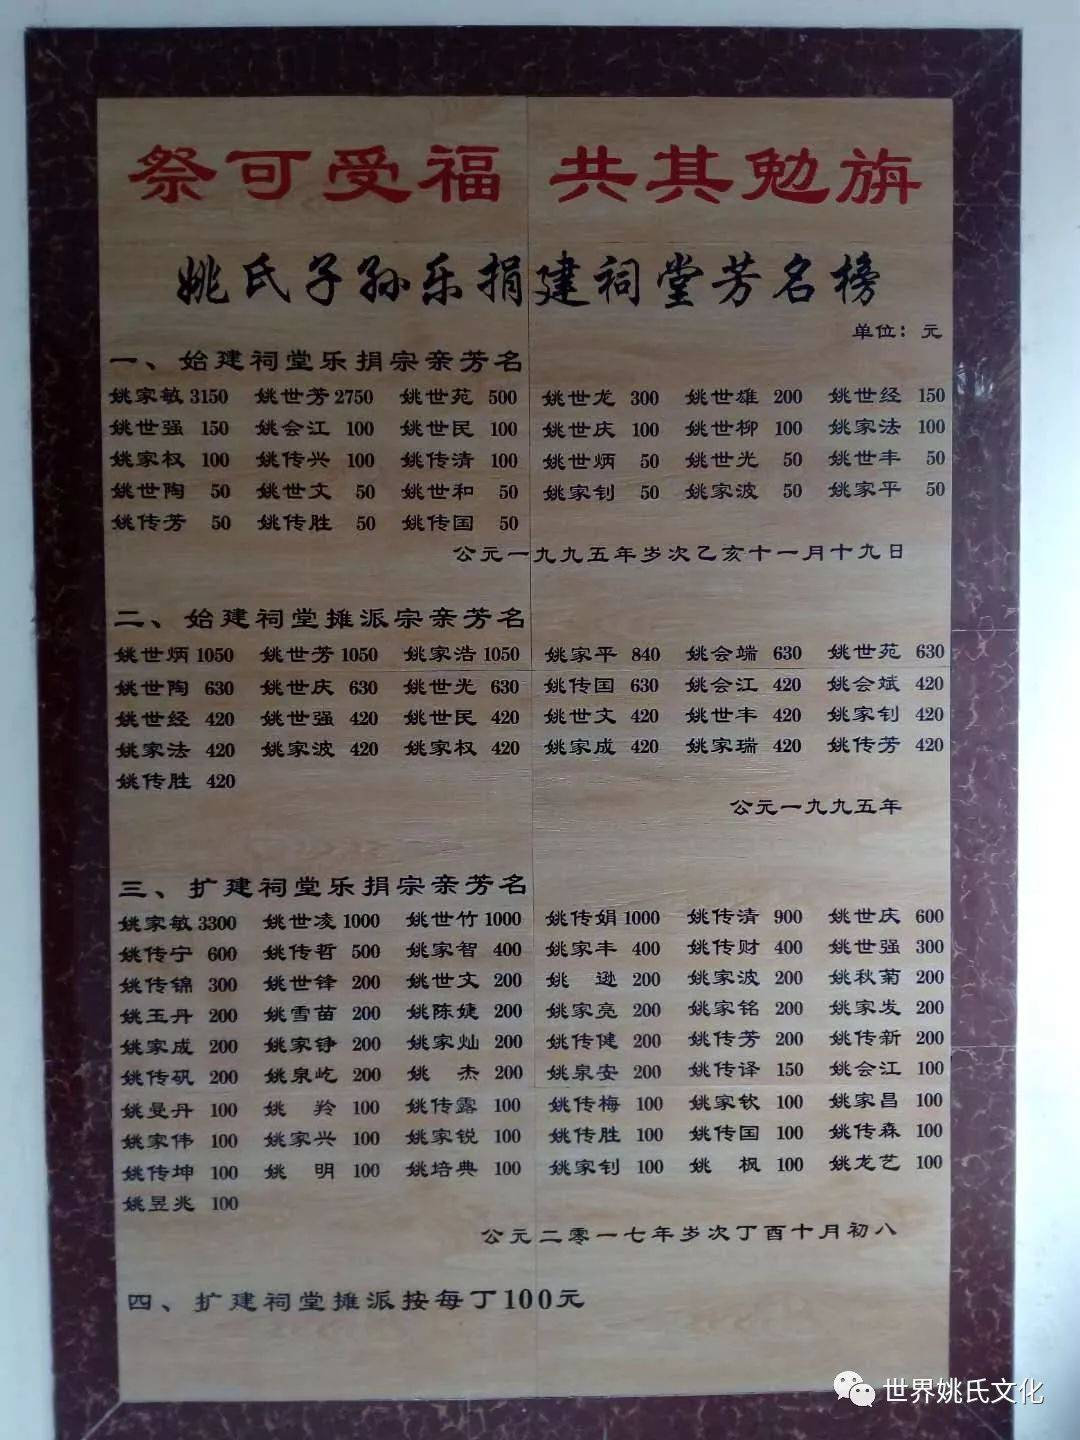 祭可受福 共其勉旃
姚氏子孙乐捐建祠堂芳名榜
单位：元
一、始建祠堂乐捐宗亲芳名
姚家敏 3150 姚世芳 2750 姚世苑 500 姚世龙 300 姚世雄 200 姚世经 150
姚世强 150 姚会江 100 姚世民 100 姚世庆 100 姚世柳 100 姚家法 100
姚家权 100 姚传兴 100 姚传清 100 姚世炳 50 姚世光 50 姚世丰 50
姚世陶 50 姚世文 50 姚世和 50 姚家钊 50 姚家波 50 姚家平 50
姚传芳 50 姚传胜 50 姚传国 50
公元一九九五年岁次乙亥十一月十九日
二、始建祠堂摊派宗亲芳名
姚世炳 1050 姚世芳 1050 姚家浩 1050 姚家平 840 姚会端 630 姚世苑 630
姚世陶 630 姚世庆 630 姚世光 630 姚传国 630 姚会江 420 姚会斌 420
姚世经 420 姚世强 420 姚世民 420 姚世文 420 姚世丰 420 姚家钊 420
姚家法 420 姚家波 420 姚家权 420 姚家成 420 姚家瑞 420 姚传芳 420
姚传胜 420
公元一九九五年
三、扩建祠堂乐捐宗亲芳名
姚家敏 3300 姚世凌 1000 姚世竹 1000 姚传娟 1000 姚传清 900 姚世庆 600
姚传宁 600 姚传哲 500 姚家智 400 姚家丰 400 姚传财 400 姚世强 300
姚传锦 300 姚世锋 200 姚世文 200 姚 逊 200 姚家波 200 姚秋菊 200
姚玉丹 200 姚雪苗 200 姚陈婕 200 姚家亮 200 姚家铭 200 姚家发 200
姚家成 200 姚家铮 200 姚家灿 200 姚传健 200 姚传芳 200 姚传新 200
姚传矾 200 姚泉屹 200 姚 杰 200 姚泉安 200 姚传译 150 姚会江 100
姚曼丹 100 姚 羚 100 姚传露 100 姚传梅 100 姚家钦 100 姚家昌 100
姚家伟 100 姚家兴 100 姚家锐 100 姚传胜 100 姚传国 100 姚传森 100
姚传坤 100 姚 明 100 姚培典 100 姚家钊 100 姚 枫 100 姚龙艺 100
姚昱兆 100
公元二零一七年岁次丁酉十月初八
四、扩建祠堂摊派按每丁100元
世界姚氏文化